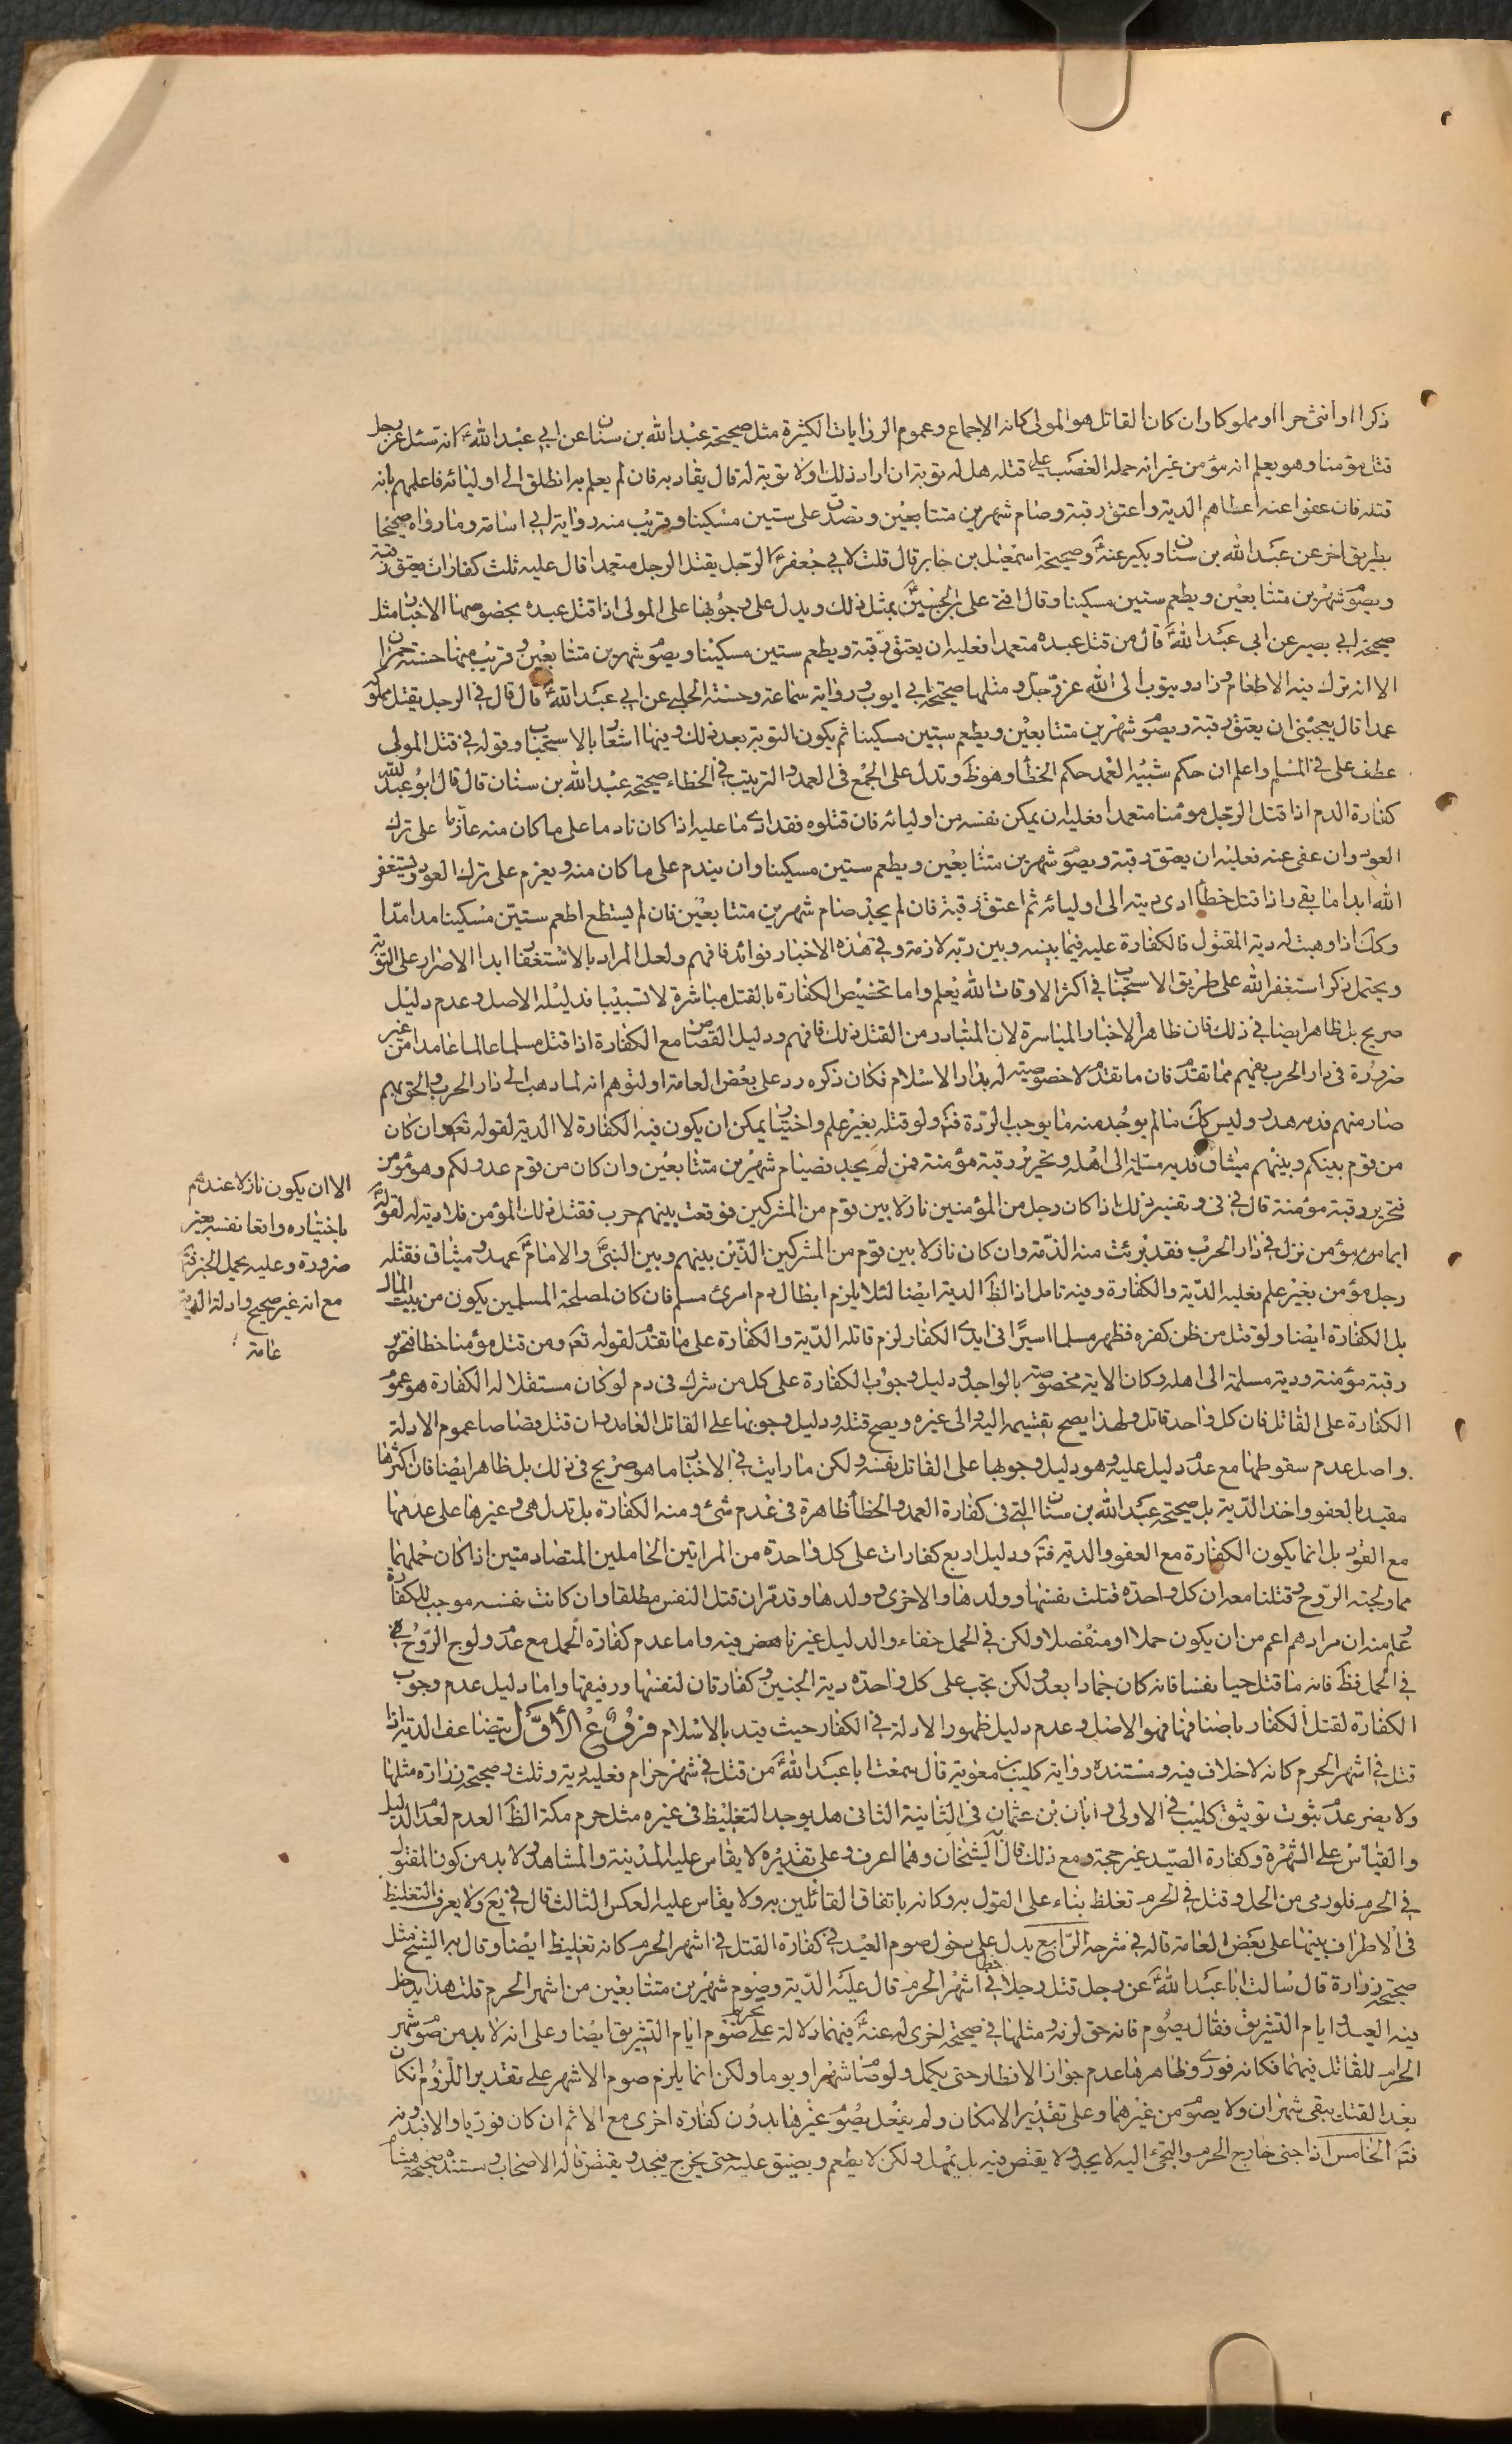 ذكرا او انثى حرا او مملوكا وان كان القاتل هو المولى كانه الاجماع وعموم الروايات الكثيرة مثل صحيحة عبد الله بن سنان عن ابي عبد الله ع انه سئل عن رجل
قتل مؤمنا وهو يعلم انه مؤمن غير انه حمله الغضب على قتله هل له توبة ان اراد ذلك او لا توبة له قال يقاد به فان لم يعلم به انطلق الى اوليائه فاعلمهم بانه
قتله فان عفوا عنه اعطاهم الدية واعتق رقبة وصام شهرين متتابعين وتصدق على ستين مسكينا وقريب منه رواية ابي اسامة وما رواه صحيحا
بطريق اخر عن عبد الله بن سنان وبكير عنه ع وصحيحة اسمعيل بن جابر قال قلت لابي جعفر ع الرجل يقتل الرجل متعمدا قال عليه ثلث كفارات يعتق رقبة
ويصوم شهرين متتابعين ويطعم ستين مسكينا وقال افتى على بن الحسين ع بمثل ذلك ويدل على وجوبها على المولى اذا قتل عبده بخصوصها الاخبار مثل
صحيحة ابي بصير عن ابي عبد الله ع قال من قتل عبده متعمدا فعليه ان يعتق رقبة ويطعم ستين مسكينا ويصوم شهرين متتابعين وقريب منها حسنة حمران
الا انه ترك فيه الاطعام وزاد ويتوب الى الله عز وجل ومثلها صحيحة ابي ايوب ورواية سماعة وحسنة الحلبي عن ابي عبد الله ع قال قال في الرجل يقتل مملوكه
عمدا قال يعجبني ان يعتق رقبة ويصوم شهرين متتابعين ويطعم ستين مسكينا ثم يكون التوبة بعد ذلك وفيها اشعار بالاستحباب وقوله في قتل المولى
عطف على في المسلم واعلم ان حكم شبيه العمد حكم الخطأ وهو ظ وتدل على الجمع في العمد والترتيب في الخطاء صحيحة عبد الله بن سنان قال قال ابو عبد الله
كفارة الدم اذا قتل الرجل مؤمنا متعمدا فعليه ان يمكن نفسه من اوليائه فان قتلوه فقد ادى ما عليه اذا كان نادما على ما كان منه عازما على ترك
العود وان عفى عنه فعليه ان يعتق رقبة ويصوم شهرين متتابعين ويطعم ستين مسكينا وان يندم على ما كان منه ويعزم على ترك العود ويستغفر
الله ابدا ما بقي واذا قتل خطأ ادى ديته الى اوليائه ثم اعتق رقبة فان لم يجد صام شهرين متتابعين فان لم يستطع اطعم ستين مسكينا مدا مدا
وكك اذا وهبت له دية المقتول فالكفارة عليه فيما بينه وبين ربه لازمة وفي هذه الاخبار فوائد فافهم ولعل المراد بالاستغفار ابدا الاصرار على التوبة
ويحتمل ذكر استغفر الله على طريق الاستحباب في اكثر الاوقات الله يعلم واما تخصيص الكفارة بالقتل مباشرة لا تسبيبا فدليله الاصل وعدم دليل
صريح بل ظاهر ايضا في ذلك فان ظاهر الاخبار المباشرة لان المتبادر من القتل ذلك فافهم ودليل القصاص مع الكفارة اذا قتل مسلما عالما عامدا من غير
ضرورة في دار الحرب يفهم مما تقدم فان ما تقدم لا خصوصية له بدار الاسلام فكان ذكره رد على بعض العامة او لتوهم انه لما ذهب الى دار الحرب والحق بهم
صار منهم فدمه هدر وليس كك ما لم يوجد منه ما يوجب الردة فتم ولو قتله بغير علم واختيار يمكن ان يكون فيه الكفارة لا الدية لقوله تعم وان كان
من قوم بينكم وبينهم ميثاق فدية مسلمة الى اهله وتحرير رقبة مؤمنة فمن لم يجد فصيام شهرين متتابعين وان كان من قوم عدو لكم وهو مؤمن
فتحرير رقبة مؤمنة قال في تفسير ذلك اذا كان رجل من المؤمنين نازلا بين قوم من المشركين فوقعت بينهم حرب فقتل ذلك المؤمن فلا دية له لقوله ع
ايما مؤمن نزل في دار الحرب فقد برئت منه الذمة وان كان نازلا بين قوم من المشركين الذين بينهم وبين النبي والامام ع عهد وميثاق فقتله
رجل مؤمن بغير علم فعليه الدية والكفارة وفيه تامل اذ الظ الدية ايضا لئلا يلزم ابطال دم امرئ مسلم فان كان لمصلحة المسلمين يكون من بيت المال
بل الكفارة ايضا ولو قتل من ظن كفره فظهر مسلما اسيرا في ايدى الكفار لزم قاتله الدية والكفارة على ما تقدم لقوله تعم ومن قتل مؤمنا خطا فتحرير
رقبة مؤمنة ودية مسلمة الى اهله وكان الاية مخصوصة بالواجد ودليل وجوب الكفارة على كل من شرك في دم لو كان مستقلا له الكفارة هو عموم
الكفارة على القاتل فان كل واحد قاتل ولهذا يصح تقسيمه اليه والى غيره ويصح قتله ودليل وجوبها على القاتل العامد وان قتل قصاصا عموم الادلة
واصل عدم سقوطها مع عدم دليل عليه وهو دليل وجوبها على القاتل نفسه ولكن ما رايت في الاخبار ما هو صريح في ذلك بل ظاهر ايضا فان اكثرها
مقيد بالعفو واخذ الدية بل صحيحة عبد الله بن سنان التي في كفارة العمد والخطأ ظاهرة في عدم شئ ومنه الكفارة بل تدل هي وغيرها على عدمها
مع القود بل انما يكون الكفارة مع العفو والدية فتم ودليل اربع كفارات على كل واحدة من المراتين الحاملين المتصادمتين اذا كان حملهما
مما ولجته الروح وقتلنا معه ان كل واحدة قتلت نفسها وولدها والاخرى وولدها وقد مر ان قتل النفس مطلقا وان كانت نفسه موجب للكفارة
وعلم منه ان مرادهم اعم من ان يكون حملا او منفصلا ولكن في الحمل خفاء والدليل غير ناهض فيه واما عدم كفارة الحمل مع عدم ولوج الروح فيه
في الحمل فظ فانه ما قتل حيا نفسا فانه كان جمادا بعد ولكن تجب على كل واحدة دية الجنين وكفارتان لنفسها ورفيقها واما دليل عدم وجوب
الكفارة لقتل الكفار باصنافها فهو الاصل وعدم دليل ظهور الادلة في الكفار حيث قيد بالاسلام فروع الاول يتضاعف الدية اذا
قتل في اشهر الحرم كانه لا خلاف فيه ومستنده رواية كليب بن معوية قال سمعت ابا عبد الله ع من قتل في شهر حرام فعليه دية وثلث وصحيحة زرارة مثلها
ولا يضر عدم ثبوت توثيق كليب في الاولى وابان بن عثمان في الثانية الثاني هل يوجد التغليظ في غيره مثل حرم مكة الظ العدم لعدم الدليل
والقياس على الشهرة وكفارة الصيد غير حجة ومع ذلك قال الشيخان وهما اعرف وعلى تقديره لا يقاس عليه المدينة والمشاهد ولا بد من كون المقتول
في الحرم فلو رمى من الحل وقتل في الحرم تغلظ بناء على القول به وكانه باتفاق القائلين به ولا يقاس عليه العكس الثالث قال في يع ولا يعرف التغليظ
في الاطراف بينها على بعض العامة قاله في شرحه الرابع يدل على دخول صوم العيد في كفارة القتل في اشهر الحرم كانه تغليظ ايضا وقال به الشيخ مثل
صحيحة زرارة قال سالت ابا عبد الله ع عن رجل قتل رجلا خطأ في اشهر الحرم قال عليه الدية وصوم شهرين متتابعين من اشهر الحرم قلت هذا يدخل
فيه العيد وايام التشريق فقال يصوم فانه حق لزمه ومثلها في صحيحة اخرى له عنه ع فيهما دلالة على تحريم صوم ايام التشريق ايضا وعلى انه لا بد من صوم شهر
الحرام للقاتل فيهما فكانه فورى وظاهرها عدم جواز الافطار حتى يكمل ولو صام شهرا ويوما ولكن انما يلزم صوم الاشهر على تقدير اللزوم لكان
بعد القتل يبقى شهران ولا يصوم من غيرهما وعلى تقدير الامكان ولم يفعل يصوم غيرها بدون كفارة اخرى مع الاثم ان كان فوريا والا فبدونه
فتم الخامس اذا جنى خارج الحرم والتجئ اليه لا يحد ولا يقتص فيه بل يمهل ولكن لا يطعم ويضيق عليه حتى يخرج فيحد ويقتص قاله الاصحاب ومستنده صحيحة هشام
الا ان يكون نازلا عندهم
باختياره واتعا نفسه بغير
ضرورة وعليه يحمل الخبر فتم
مع انه غير صحيح وادلة الدية
عامة